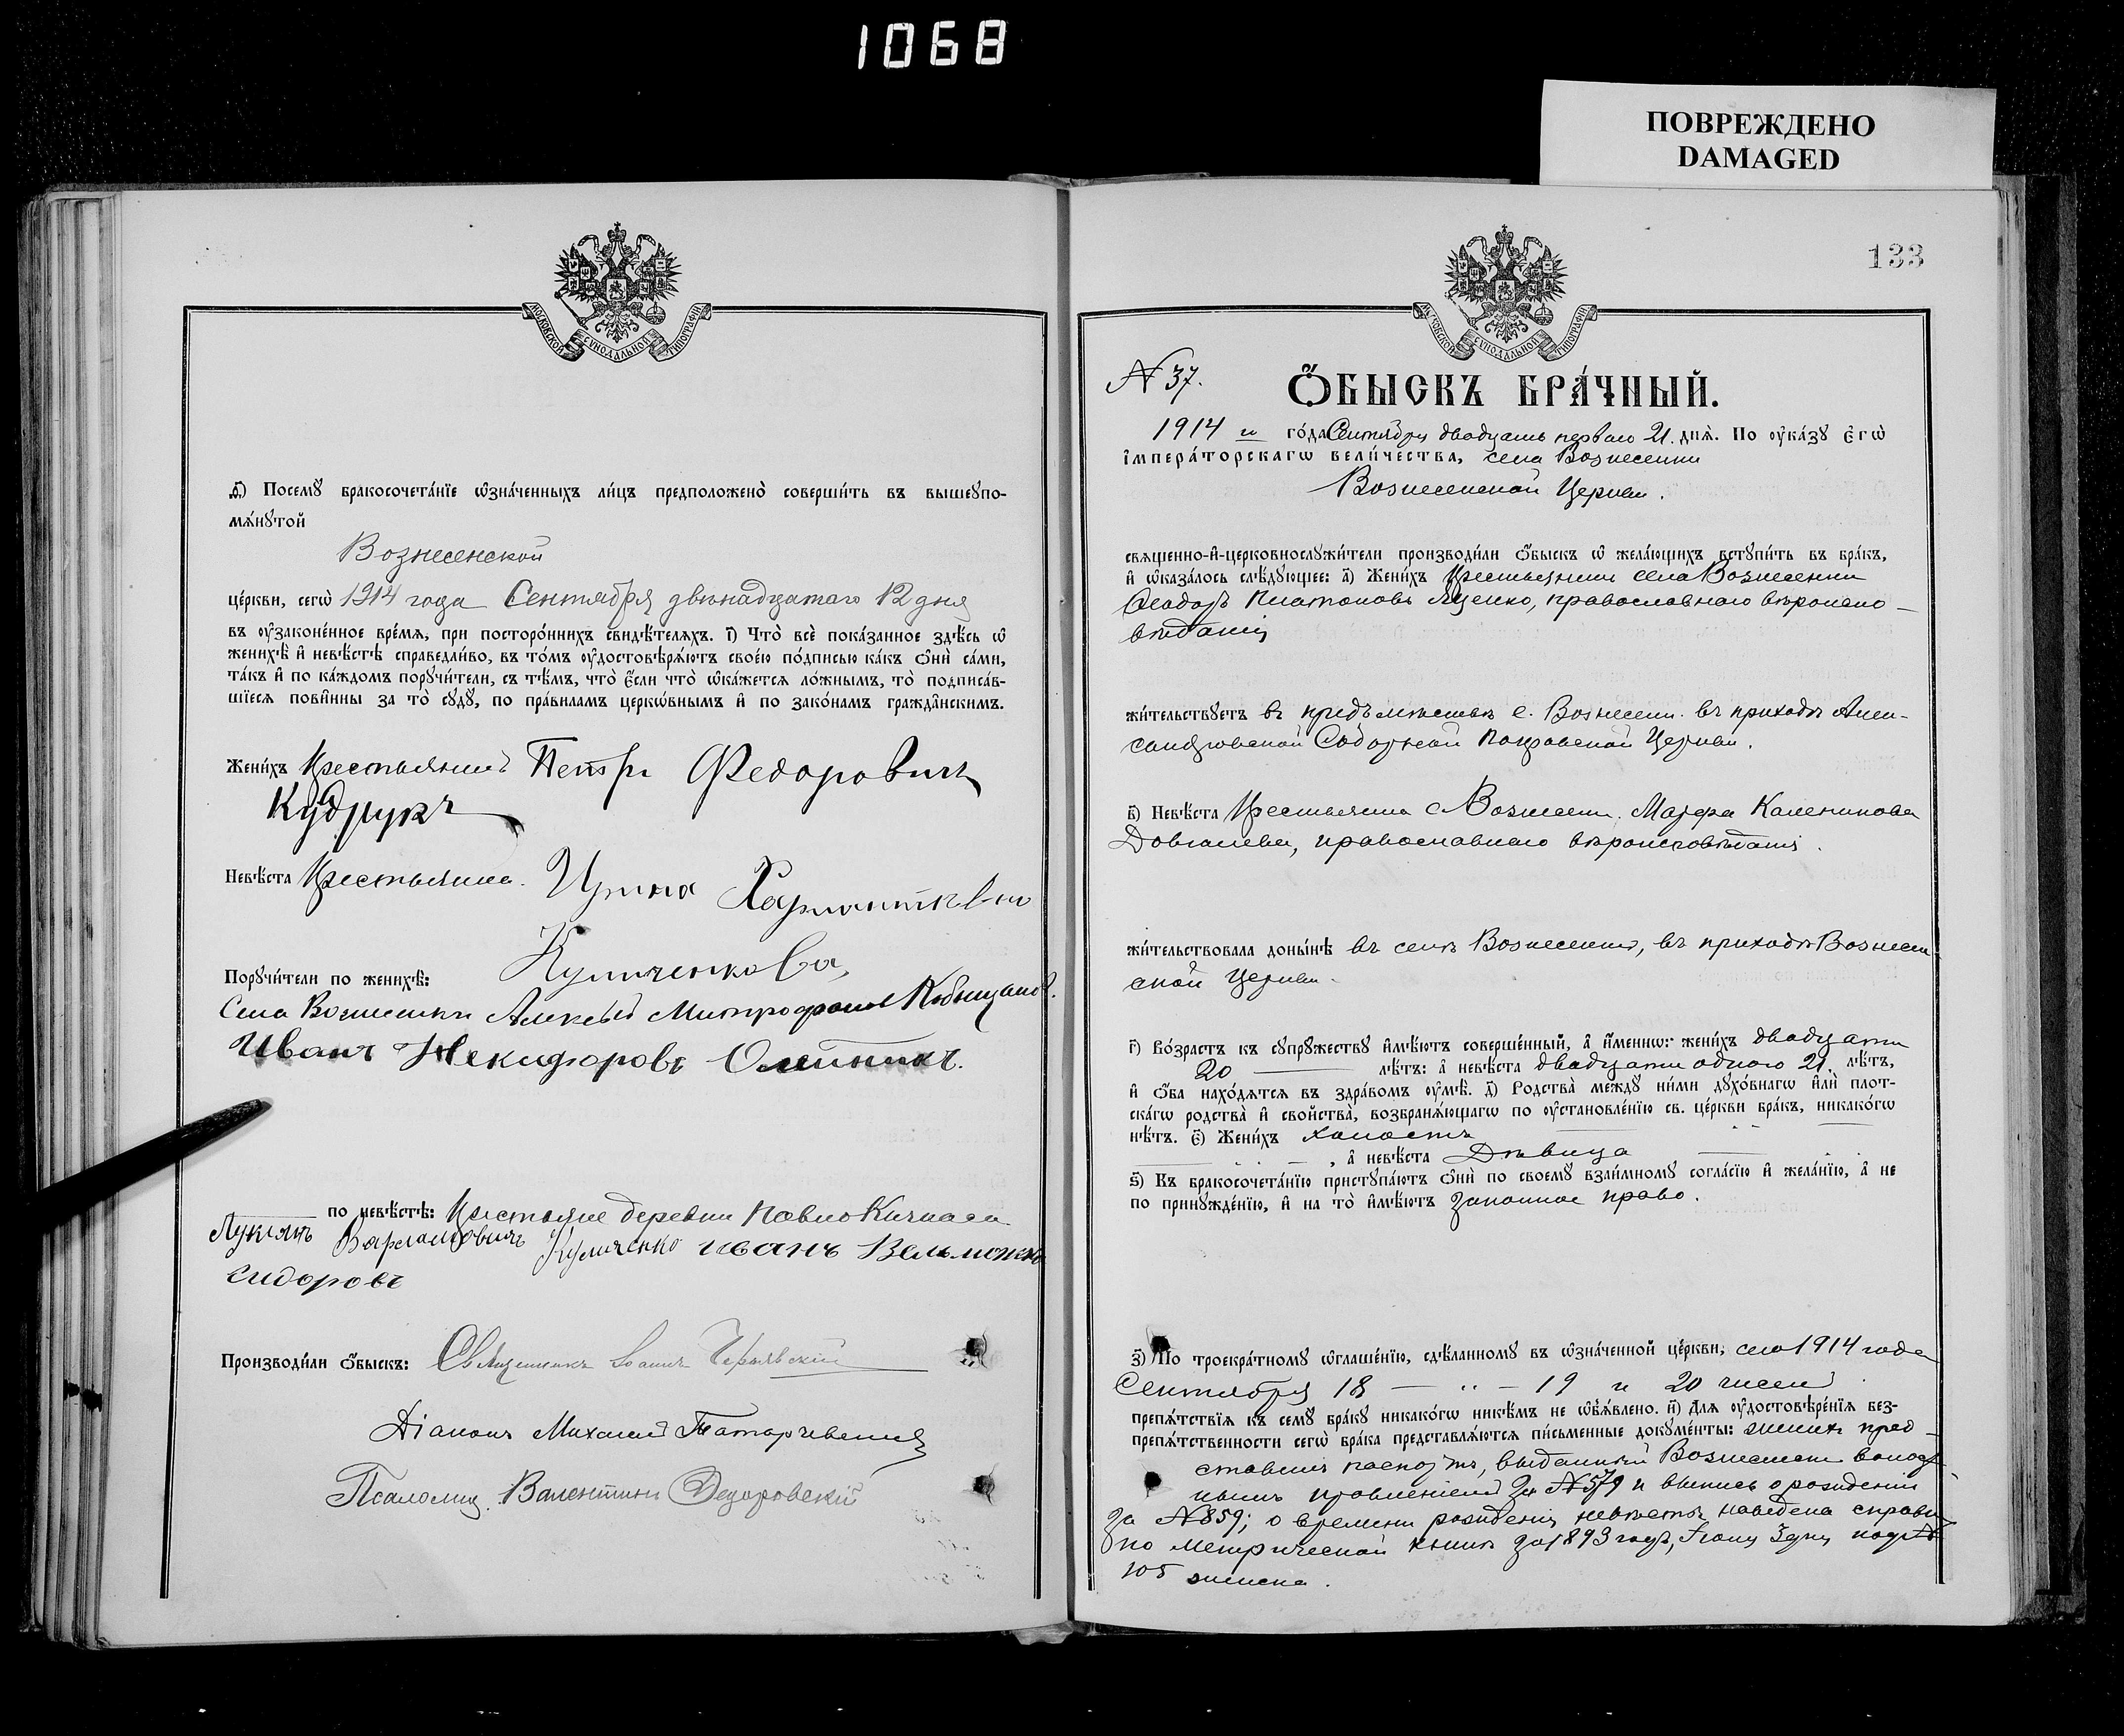 1068
ПОВРЕЖДЕНО
DAMAGED
МОСКОВСКОЙ СѴНОДАЛЬНОЙ ТИПОГРАФІИ
д҃) Посемꙋ бракосочета́нїе ѡ҆зна́ченныхъ ли́цъ предположено̀ соверши́ть въ вышеꙋпо-
мѧ́нꙋтой
Вознесенской
це́ркви, сегѡ̀ 1914 года Сентября двѣнадцатаго 12 дня
въ ᲂу҆законе́нное вре́мѧ, при посторо́ннихъ свидѣ́телѧхъ. і҃) Что̀ всѐ пока́занное здѣ́сь ѡ҆
женихѣ̀ и҆ невѣ́стѣ справедли́во, въ то́мъ ᲂу҆достовѣрѧ́ютъ свое́ю по́дписью ка́къ ѻ҆нѝ са́ми,
та́къ и҆ по ка́ждомъ порꙋчи́тели, съ тѣ́мъ, что̀ є҆́сли что̀ ѡ҆ка́жетсѧ ло́жнымъ, то̀ подписа́в-
шїесѧ пови́нны за то̀ сꙋдꙋ̀, по пра́виламъ церко́внымъ и҆ по зако́намъ гражда̑нскимъ.
Жени́хъ Крестьянинъ Петръ Федоровичъ
Кудрукъ
Невѣ́ста Крестьянка Ирина
Куличенкова
Порꙋчи́тели по женихѣ̀:
Села Вознесенки Алексѣй Митрофановъ
Иванъ Олейникъ.
по невѣ́стѣ: Крестьяне деревни Павло Кичкаса
Лукіянъ Варламовичъ Куличенко иванъ Вельможко
сидоровъ
Производи́ли ѻ҆́быскъ: Священникъ Іоаннъ Чернявскій
Діаконъ Михаилъ Татарчевскій
Псаломщ. Валентинъ Федоровскій
133
МОСКОВСКОЙ СѴНОДАЛЬНОЙ ТИПОГРАФІИ
N 37.
Ѻ҆́БЫСКЪ БРА́ЧНЫЙ.
1914 го го́да Сентября двадцать перваго 21. днѧ̀. По ᲂу҆ка́зꙋ є҆гѡ̀
і҆мпера́торскагѡ вели́чества, села Вознесенки
Вознесенской Церкви.
свѧщенно-и҆-церковнослꙋжи́тели производи́ли ѻ҆́быскъ ѡ҆ жела́ющихъ встꙋпи́ть въ бра́къ,
и҆ ѡ҆каза́лось слѣ́дꙋющее: а҃) Жени́хъ Крестьянинъ села Вознесенки
Ѳеодоръ Платоновъ Яценко, православнаго вѣроиспо-
вѣданія
жи́тельствꙋетъ въ предъмѣстьи с. Вознесен. въ приходѣ Алек-
сандровской Соборной Покровской Церкви.
в҃) Невѣ́ста Крестьянка с. Вознесен. Марфа Каленикова
Довгалева, православнаго вѣроисповѣданія.
жи́тельствовала доны́нѣ въ селѣ Вознесенки, въ приходѣ Вознесен
ской Церкви.
г҃) Во́зрастъ къ сꙋпрꙋ́жествꙋ и҆мѣ́ютъ соверше́нный, а҆ и҆́меннѡ: жени́хъ двадцати
20 лѣ́тъ: а҆ невѣ́ста двадцати одного 21. лѣ́тъ,
и҆ ѻ҆́ба нахо́дѧтсѧ въ здра́вомъ ᲂу҆мѣ̀. д҃) Родства̀ междꙋ ни́ми дꙋхо́внагѡ и҆лѝ плот-
ска́гѡ родства̀ и҆ свойства̀, возбранѧ́ющагѡ по ᲂу҆становле́нїю св. це́ркви бра́къ, никако́гѡ
нѣ́тъ. є҃) Жени́хъ холостъ
, а҆ невѣ́ста Дѣвица
ѕ҃) Къ бракосочета́нїю пристꙋпа́ютъ ѻ҆нѝ по своемꙋ̀ взаи́мномꙋ согла́сїю и҆ жела́нїю, а҆ не
по принꙋжде́нїю, и҆ на то̀ и҆мѣ́ютъ законное право.
з҃) По троекра́тномꙋ ѡ҆глаше́нїю, сдѣ́ланномꙋ въ ѡ҆зна́ченной це́ркви, сего 1914 года
Сентября 18 — " — 19 и 20 чиселъ
препѧ́тствїѧ къ семꙋ̀ бра́кꙋ никако́гѡ никѣ́мъ не ѡ҆б̾ѧ́влено. и҃) Длѧ ᲂу҆достовѣре́нїѧ без-
препѧ́тственности сегѡ̀ бра́ка представлѧ́ютсѧ пи́сьменные докꙋме́нты: женихъ пред-
ставилъ паспортъ, выданный Вознесенск волост
нымъ правленіемъ за N 579 и выпись о рожденіи
за N 859; о времени рожденія невѣсты наведена справка
по метрической книгѣ за 1893 годъ, Іюля 3 дня подъ N
105 записана.